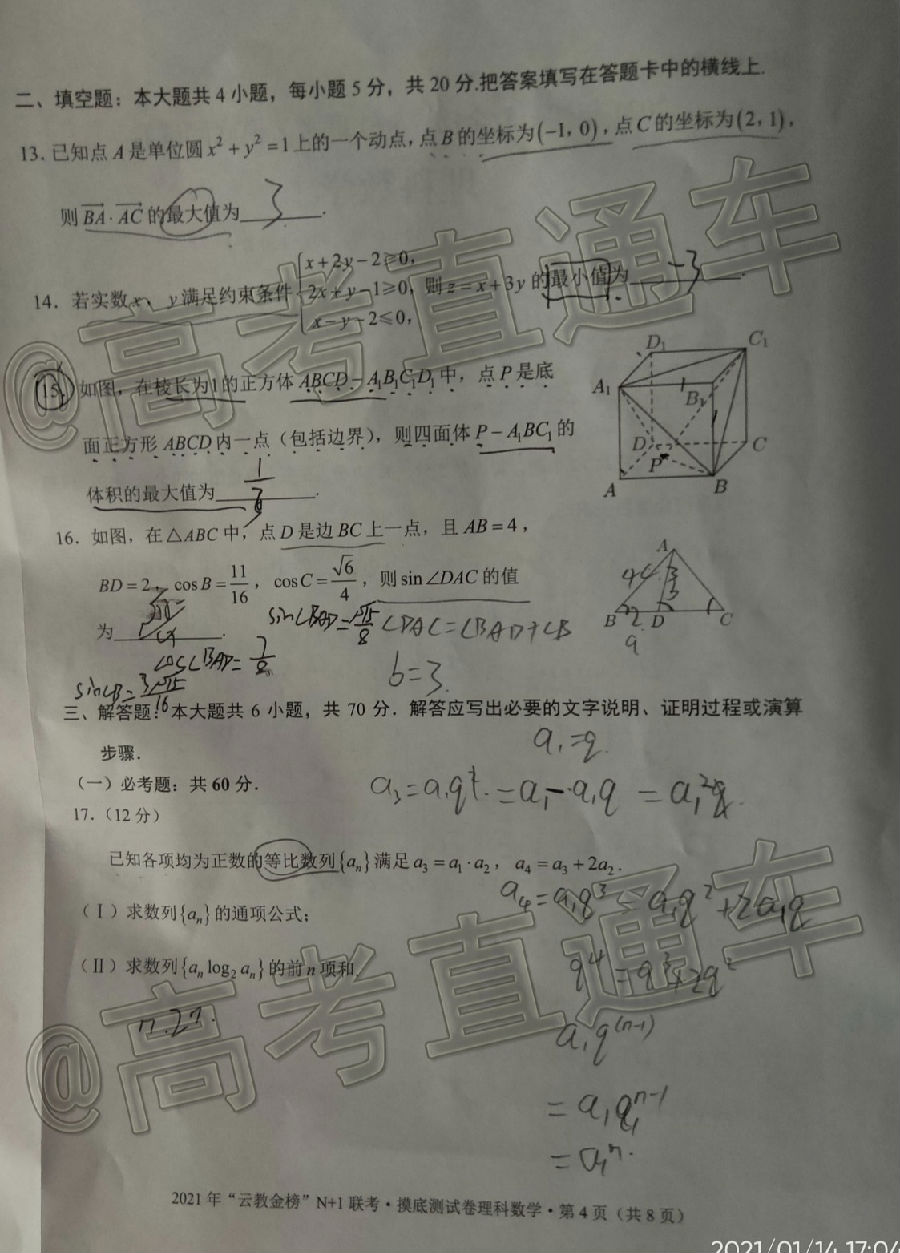 二、填空题：本大题共 4 小题，每小题 5 分，共 20 分.把答案填写在答题卡中的横线上.
13. 已知点 A 是单位圆 x² + y² = 1 上的一个动点, 点 B 的坐标为(−1, 0), 点 C 的坐标为(2, 1),
则 BA · AC 的最大值为 3 .
14. 若实数 x、y 满足约束条件 { x+2y−2≥0, 2x+y−1≥0, x−y−2≤0, 则 z = x+3y 的最小值为 −3 .
15. 如图，在棱长为1的正方体 ABCD − A₁B₁C₁D₁ 中，点 P 是底
面正方形 ABCD 内一点（包括边界），则四面体 P − A₁BC₁ 的
体积的最大值为 .
D₁ C₁
A₁ B₁
D C
P
A B
16. 如图，在 △ABC 中，点 D 是边 BC 上一点，且 AB = 4，
BD = 2，cos B = 11/16，cos C = √6/4，则 sin∠DAC 的值
为 .
A
B D C
sin∠BAD = √15/8 ∠DAC = ∠BAD+∠B
cos∠BAD = 7/8
b=3.
sin∠B = 3√15/16
三、解答题：本大题共 6 小题，共 70 分．解答应写出必要的文字说明、证明过程或演算
步骤.
a₁=q.
（一）必考题：共 60 分.
a₃=a₁q². = a₁·a₁q = a₁²q.
17.（12 分）
已知各项均为正数的等比数列{aₙ}满足 a₃ = a₁ · a₂，a₄ = a₃ + 2a₂.
a₄=a₁q³ = a₁q²+2a₁q
（Ⅰ）求数列{aₙ}的通项公式；
（Ⅱ）求数列{aₙ log₂ aₙ}的前 n 项和.
q⁴=q³+2q²
n·2ⁿ.
a₁q⁽ⁿ⁻¹⁾
= a₁qⁿ⁻¹
= a₁ⁿ.
@高考直通车
@高考直通车
2021 年“云教金榜”N+1 联考·摸底测试卷理科数学·第 4 页（共 8 页）
2021/01/14 17:04